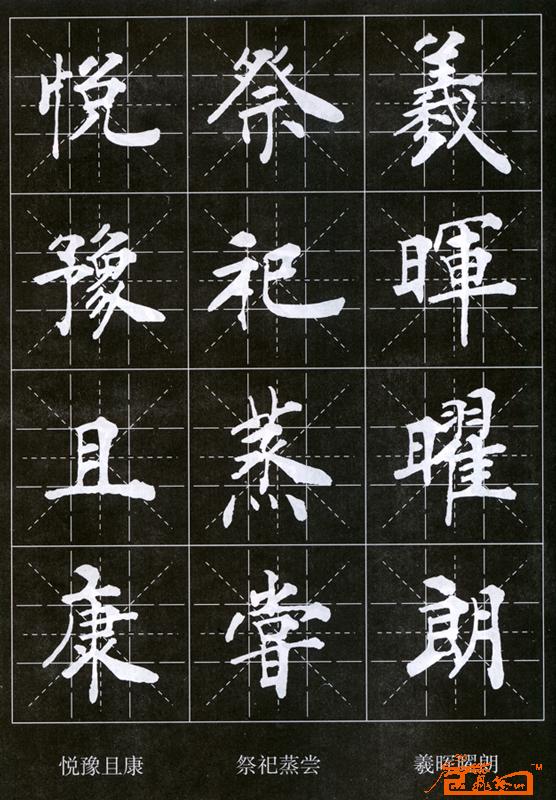 羲暉曜朗
祭祀蒸嘗
悦豫且康
羲晖曜朗
祭祀蒸尝
悦豫且康
TM